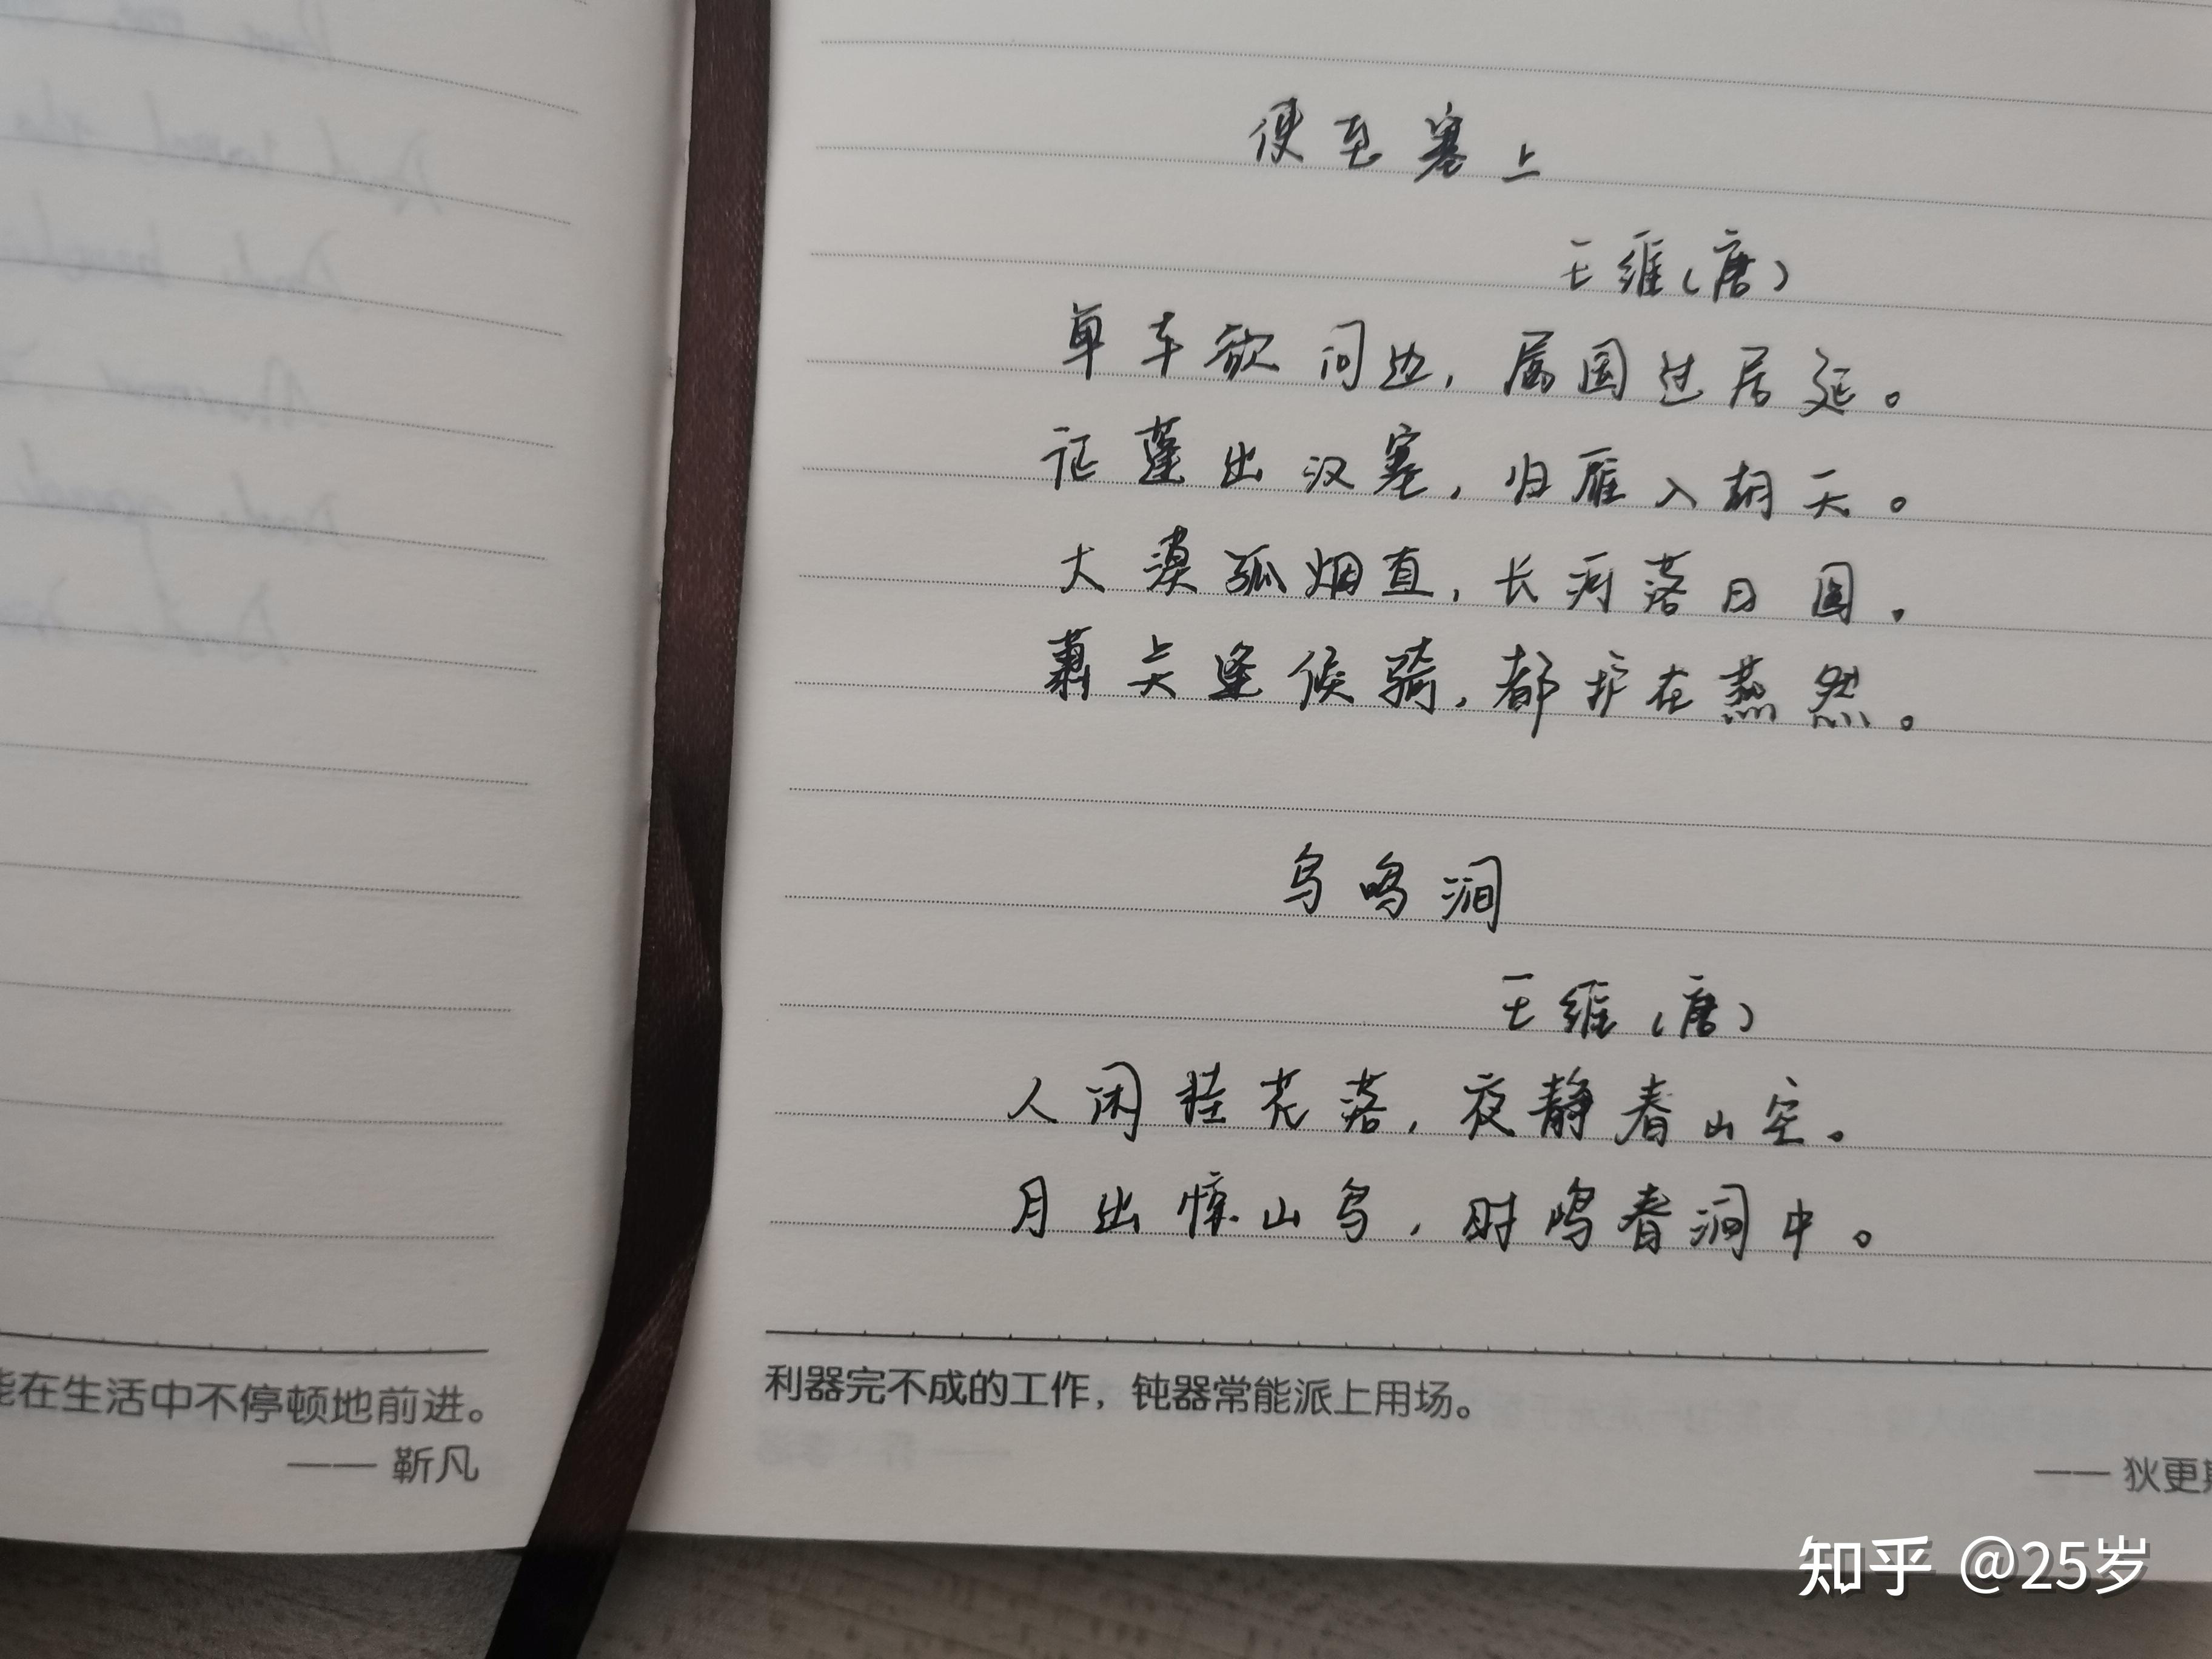 使至塞上
王维（唐）
单车欲问边，属国过居延。
征蓬出汉塞，归雁入胡天。
大漠孤烟直，长河落日圆。
萧关逢候骑，都护在燕然。
鸟鸣涧
王维（唐）
人闲桂花落，夜静春山空。
月出惊山鸟，时鸣春涧中。
能在生活中不停顿地前进。
—— 靳凡
利器完不成的工作，钝器常能派上用场。
—— 狄更斯
知乎 @25岁